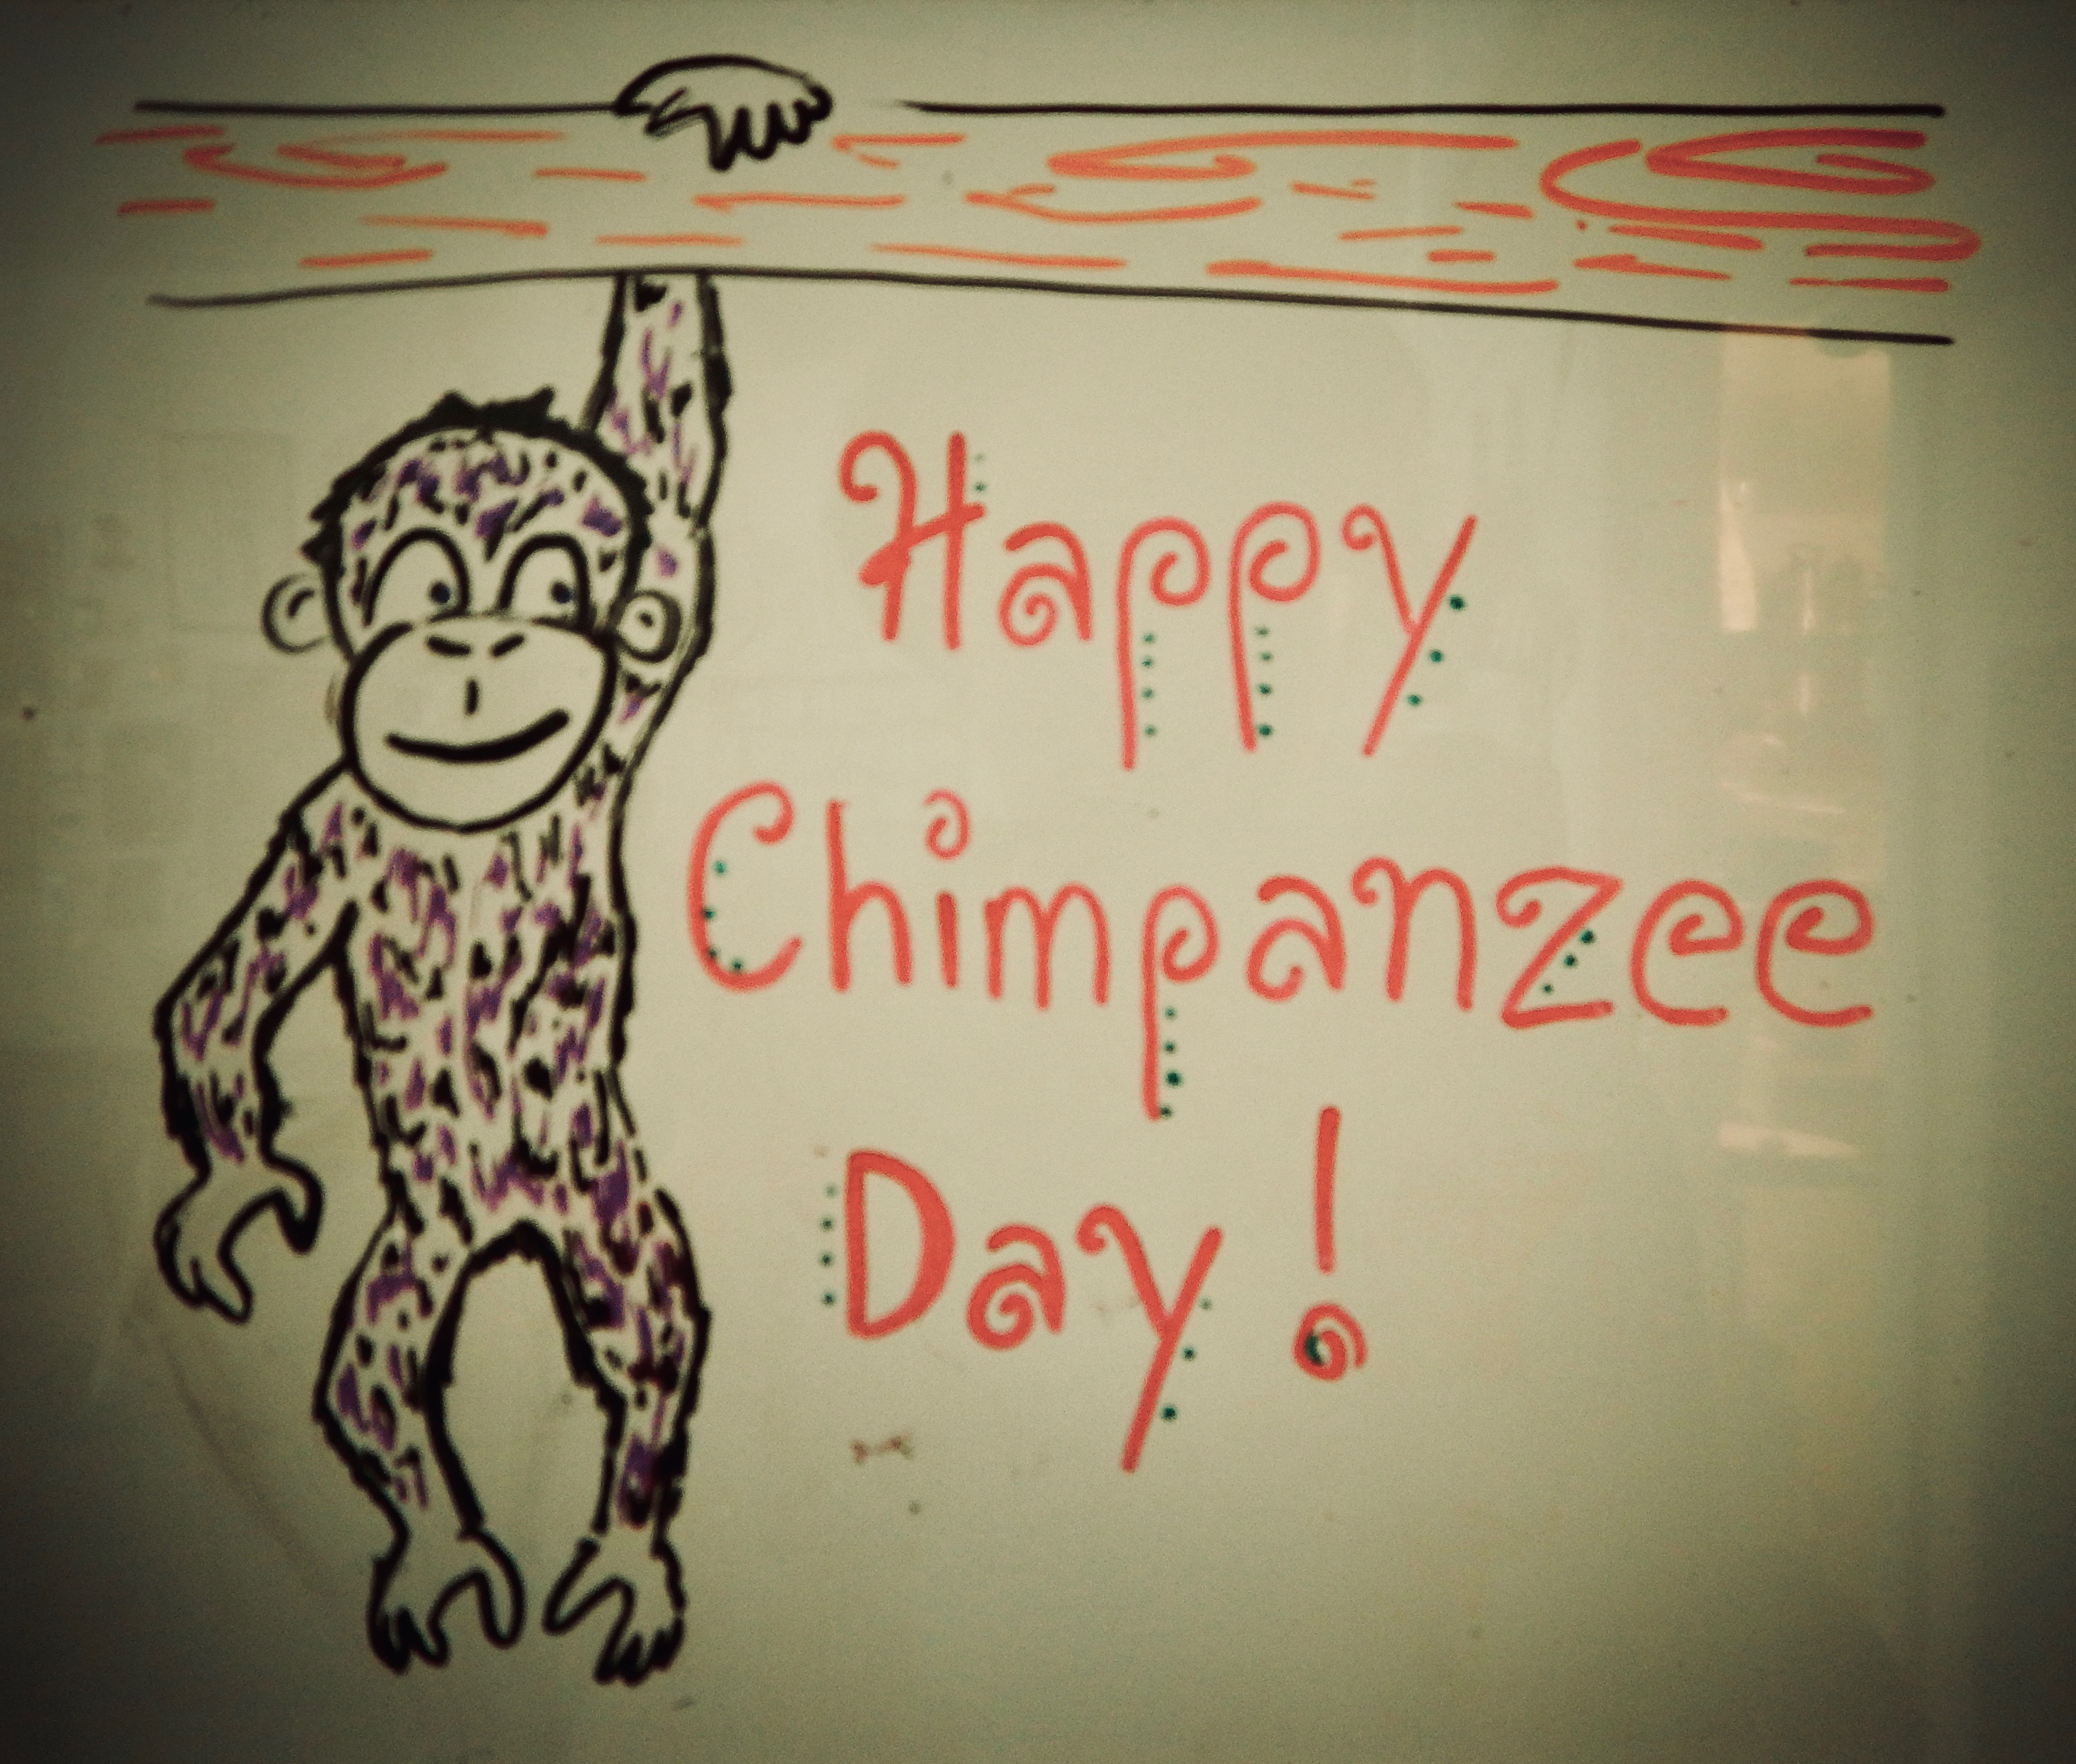 Happy
Chimpanzee
Day!